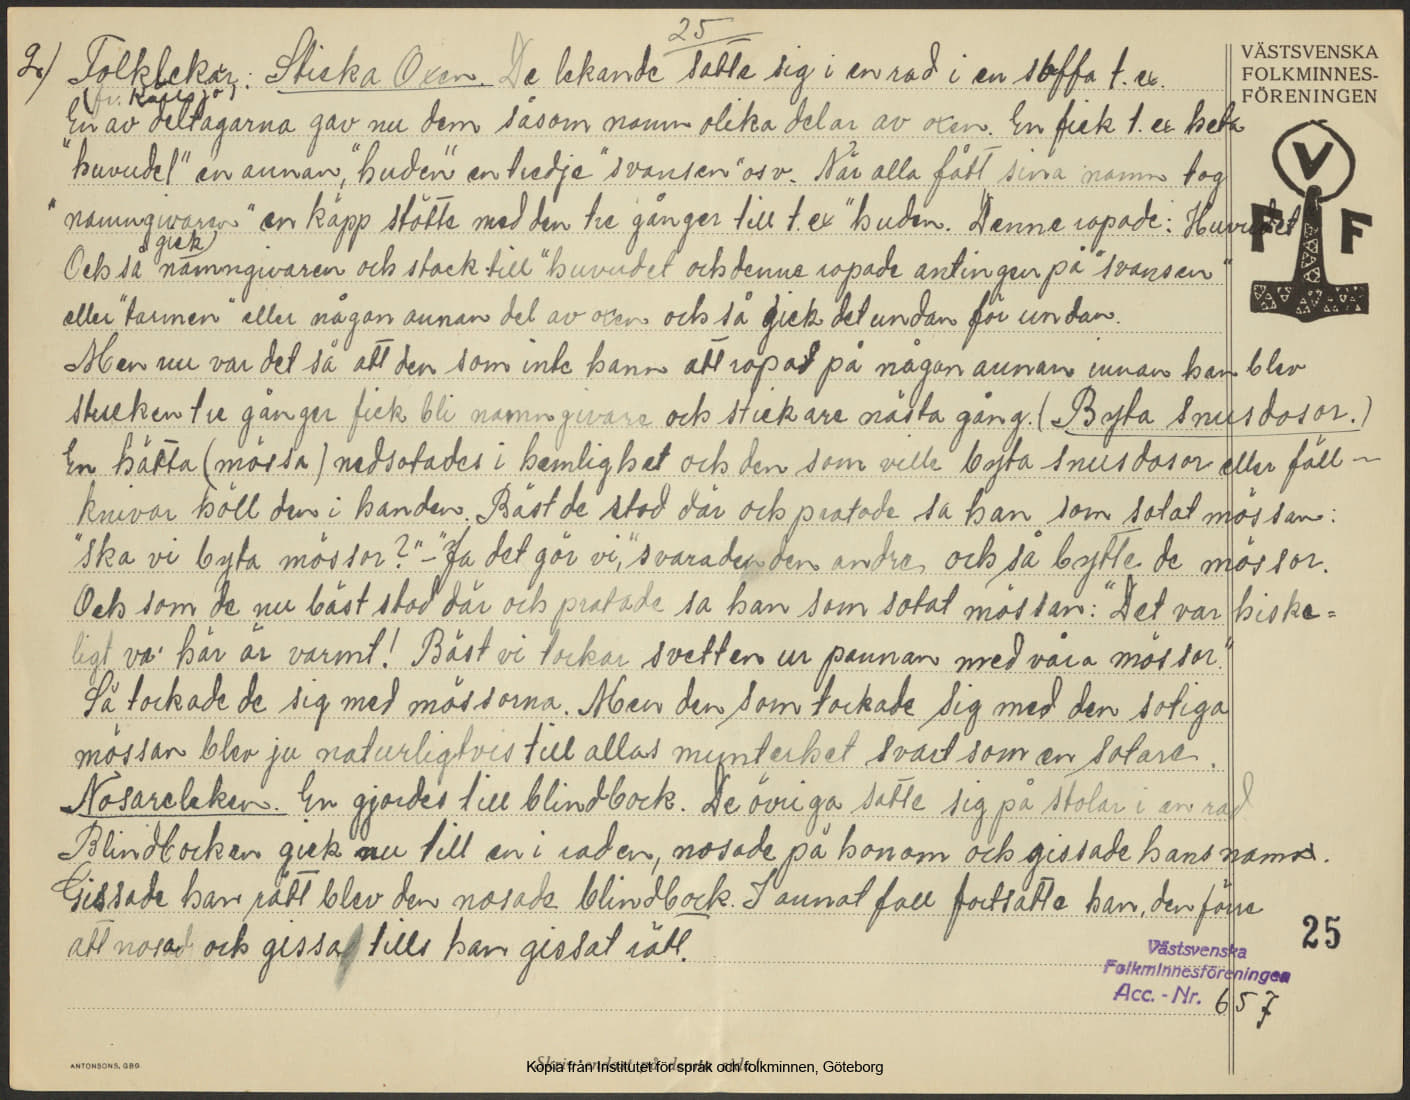 25
VÄSTSVENSKA
FOLKMINNES-
FÖRENINGEN
V
F F
g) Folklekar: Sticka Oxen. De lekande satte sig i en rad i en soffa t. ex.
En av deltagarna gav nu dem såsom namn olika delar av oxen. En fick t. ex heta
"huvudet" en annan, "huden" en tredje "svansen" osv. När alla fått sina namn tog
"namngivaren" en käpp stötte med den tre gånger till t. ex "huden. Denne ropade: Huvudet
gick
Och så namngivaren och stack till "huvudet och denne ropade antingen på "svansen"
eller "tarmen" eller någon annan del av oxen och så gick det undan för undan.
Men nu var det så att den som inte hann att ropa på någon annan innan han blev
stucken tre gånger fick bli namngivare och stickare nästa gång. (Byta snusdosor.)
En hätta (mössa) nedsotades i hemlighet och den som ville byta snusdosor eller fäll-
knivar höll den i handen. Bäst de stod där och pratade sa han som sotat mössan:
"ska vi byta mössor?" - "Ja det gör vi," svarade den andre och så bytte de mössor.
Och som de nu bäst stod där och pratade sa han som sotat mössan: "Det var hiske=
ligt va' här är varmt! Bäst vi torkar svetten ur pannan med våra mössor."
Så torkade de sig med mössorna. Men den som torkade sig med den sotiga
mössan blev ju naturligtvis till allas munterhet svart som en sotare.
Nosareleken. En gjordes till blindbock. De övriga satte sig på stolar i en rad
Blindbocken gick nu till en i raden, nosade på honom och gissade hans namn.
Gissade han rätt blev den nosade blindbock. I annat fall fortsatte han, den förre
att nosa och gissa tills han gissat rätt.
25
Västsvenska
Folkminnesföreningen
Acc. - Nr. 657
ANTONSONS, GBG
Kopia från Institutet för språk och folkminnen, Göteborg